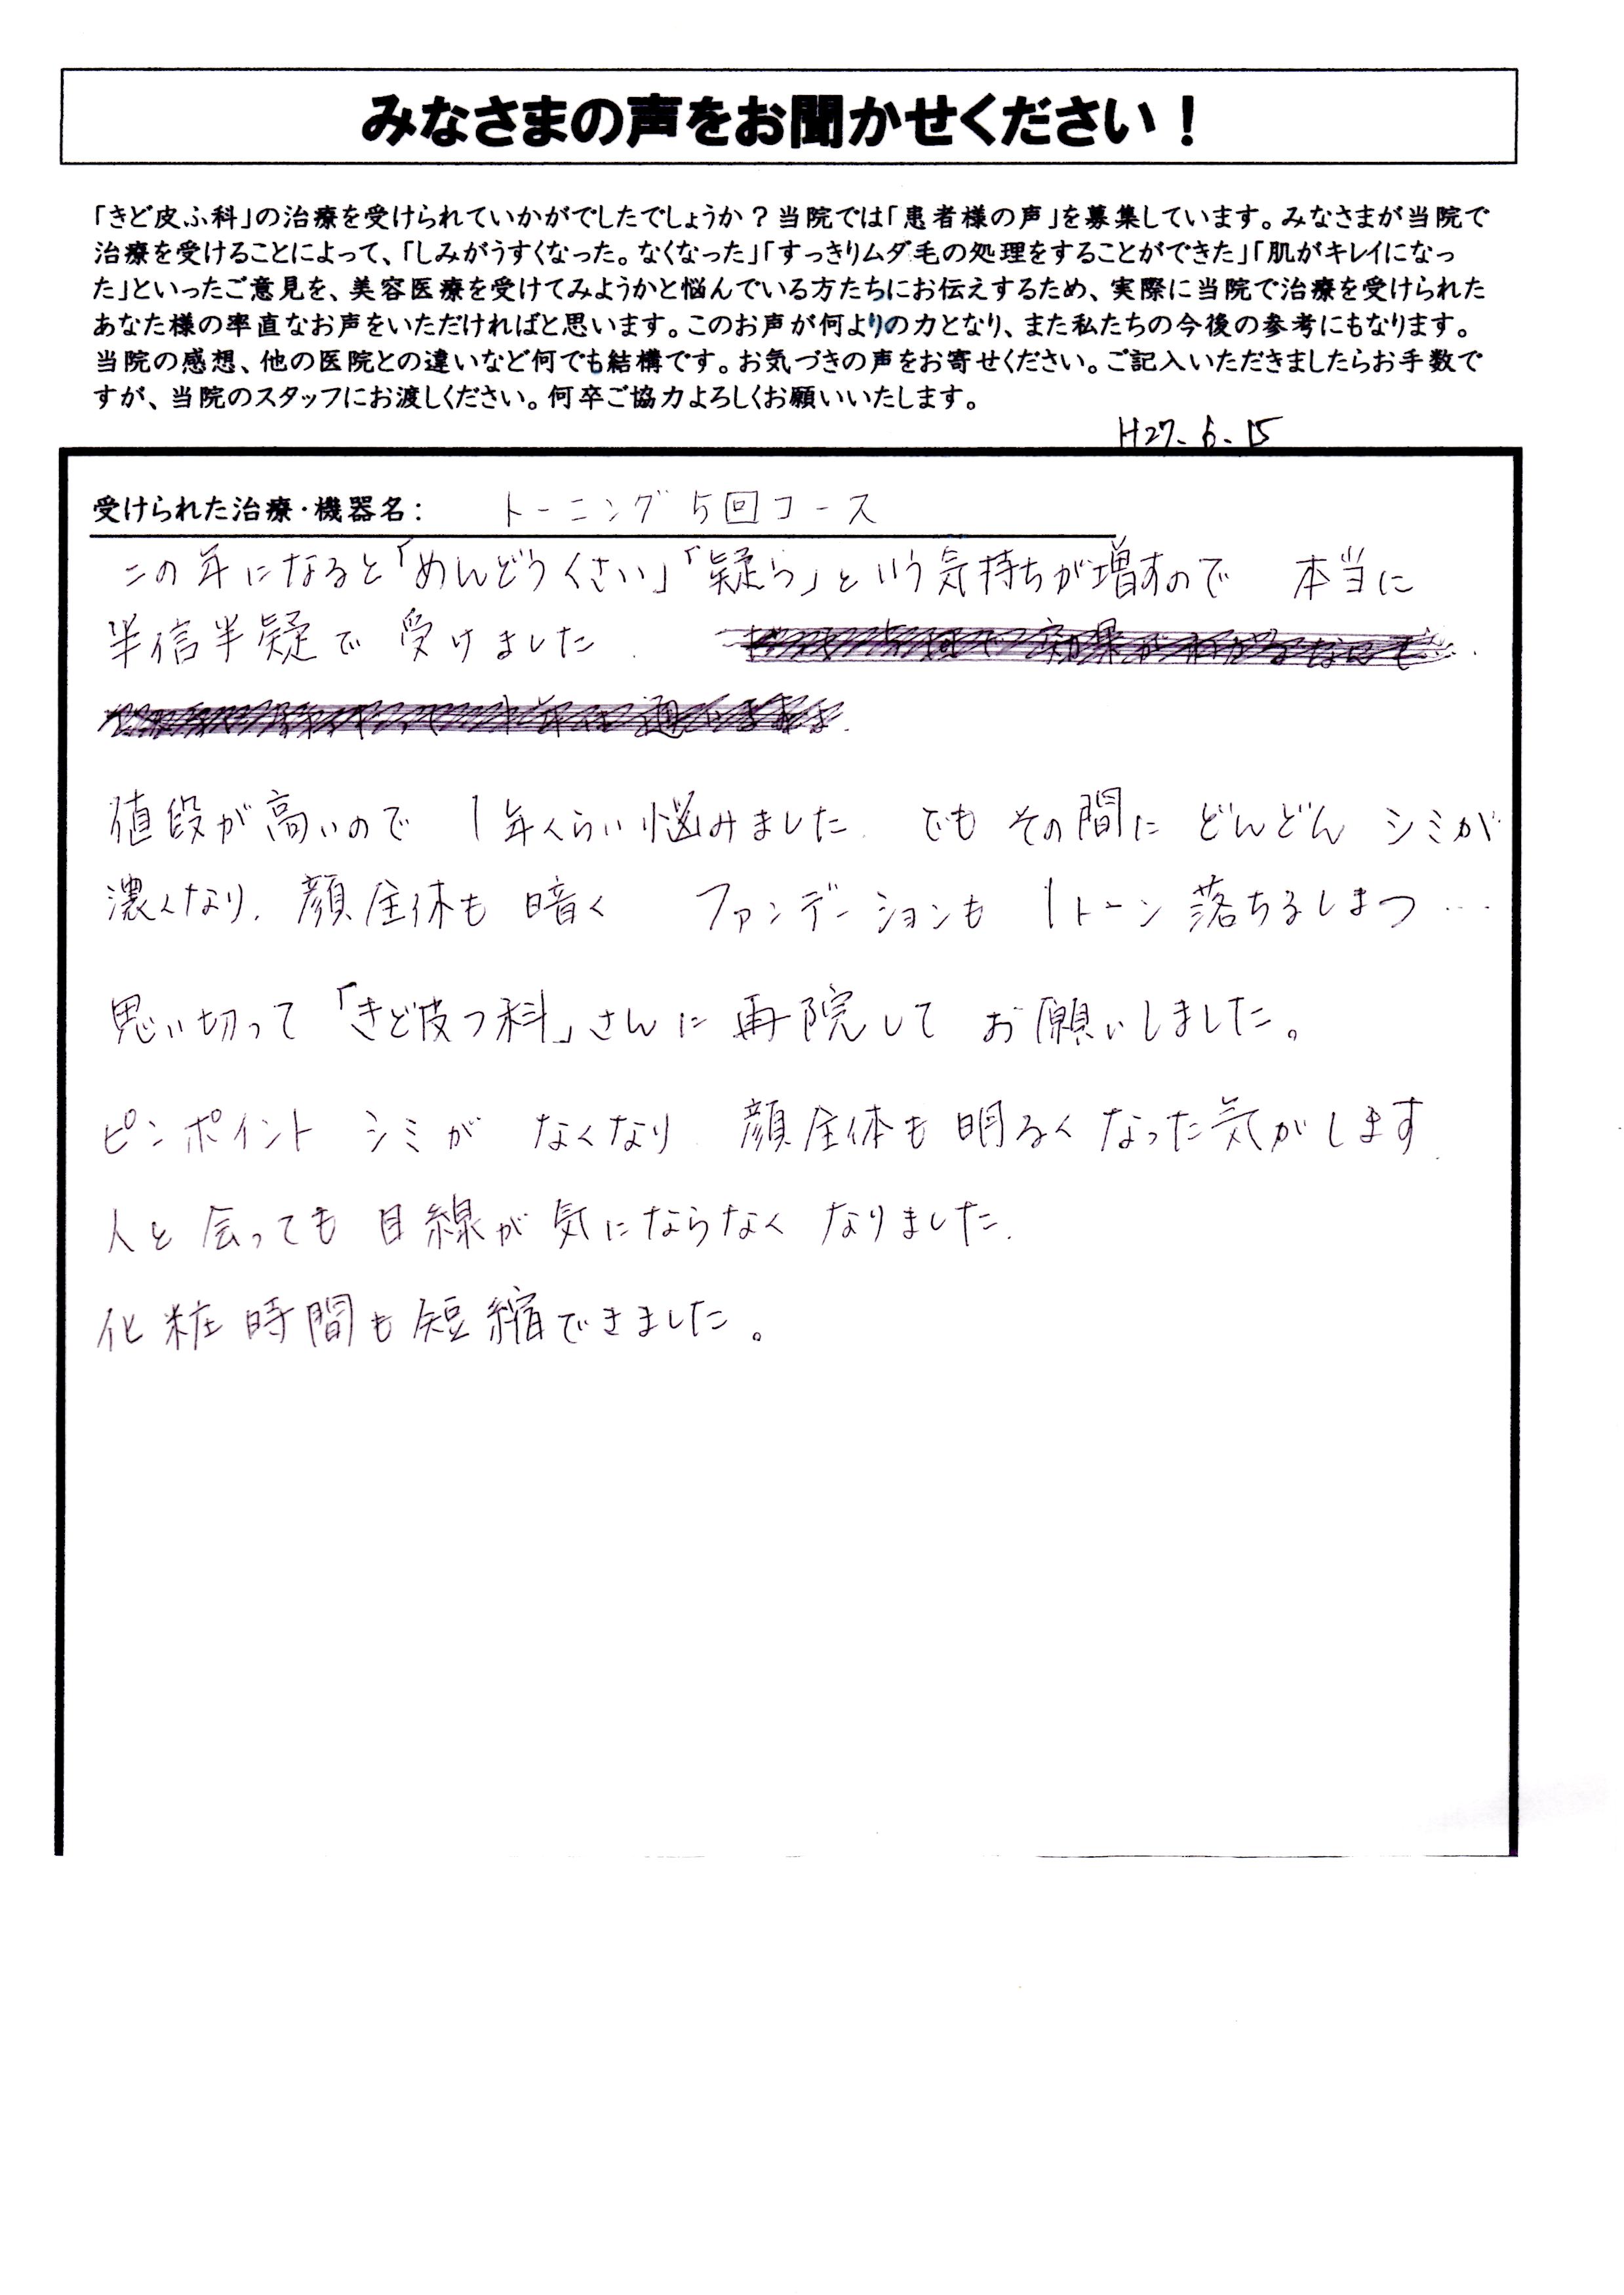 みなさまの声をお聞かせください！
「きど皮ふ科」の治療を受けられていかがでしたでしょうか？当院では「患者様の声」を募集しています。みなさまが当院で
治療を受けることによって、「しみがうすくなった。なくなった」「すっきりムダ毛の処理をすることができた」「肌がキレイになっ
た」といったご意見を、美容医療を受けてみようかと悩んでいる方たちにお伝えするため、実際に当院で治療を受けられた
あなた様の率直なお声をいただければと思います。このお声が何よりの力となり、また私たちの今後の参考にもなります。
当院の感想、他の医院との違いなど何でも結構です。お気づきの声をお寄せください。ご記入いただきましたらお手数で
すが、当院のスタッフにお渡しください。何卒ご協力よろしくお願いいたします。
H27.6.15
受けられた治療・機器名： トーニング5回コース
この年になると「めんどうくさい」「疑う」という気持ちが増すので 本当に
半信半疑で 受けました.
値段が高いので 1年くらい悩みました. でも その間に どんどん シミが
濃くなり. 顔全体も 暗く ファンデーションも 1トーン 落ちるしまつ…
思い切って「きど皮フ科」さんに 再院して お願いしました。
ピンポイント シミが なくなり 顔全体も 明るく なった気がします.
人と 会っても 目線が 気にならなく なりました.
化粧時間も短縮できました。